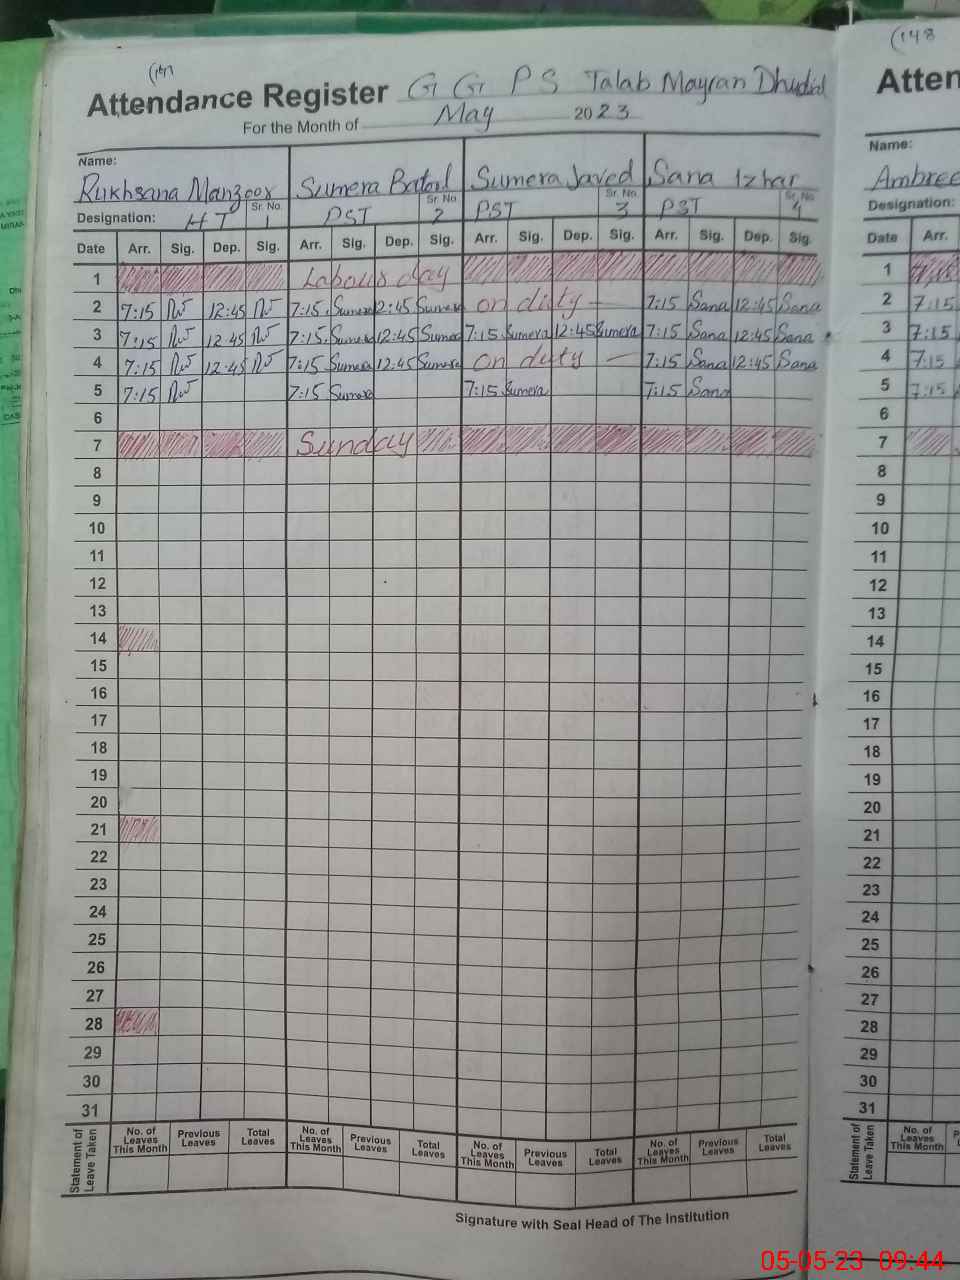 (147
(148
Attendance Register G G P S Talab Mayran Dhudial
Atten
For the Month of May 2023
Name:
Rukhsana Manzoor Sumera Batool Sumera Javed Sana Izhar
Designation: HT Sr. No. 1 PST 2 PST Sr. No. 3 PST Sr. No. 4
Date Arr. Sig. Dep. Sig. Arr. Sig. Dep. Sig. Arr. Sig. Dep. Sig. Arr. Sig. Dep. Sig.
1 Labour day
2 7:15 12:45 7:15 Sumera 12:45 Sumera on duty — 7:15 Sana 12:45 Sana
3 7:15 12:45 7:15 Sumera 12:45 Sumera 7:15 Sumera 12:45 Sumera 7:15 Sana 12:45 Sana
4 7:15 12:45 7:15 Sumera 12:45 Sumera on duty — 7:15 Sana 12:45 Sana
5 7:15 7:15 Sumera 7:15 Sumera 7:15 Sana
6
7 Sunday
8
9
10
11
12
13
14
15
16
17
18
19
20
21
22
23
24
25
26
27
28
29
30
31
Statement of Leave Taken
No. of Leaves This Month Previous Leaves Total Leaves No. of Leaves This Month Previous Leaves Total Leaves No. of Leaves This Month Previous Leaves Total Leaves No. of Leaves This Month Previous Leaves Total Leaves
Signature with Seal Head of The Institution
Name:
Ambree
Designation:
Date Arr.
1
2 7:15
3 7:15
4 7:15
5 7:15
6
7
8
9
10
11
12
13
14
15
16
17
18
19
20
21
22
23
24
25
26
27
28
29
30
31
Statement of Leave Taken
No. of Leaves This Month
05-05-23 09:44